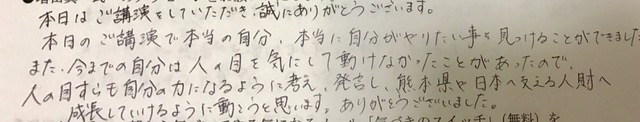 本日はご講演をしていただき、誠にありがとうございます。
本日のご講演で本当の自分、本当に自分がやりたい事を見つけることができました
また、今までの自分は人の目を気にして動けなかったことがあったので、
人の目すらも自分の力になるように考え、発言し、熊本県や日本へ支える人財へ
成長していけるように動こうと思います。ありがとうございました。